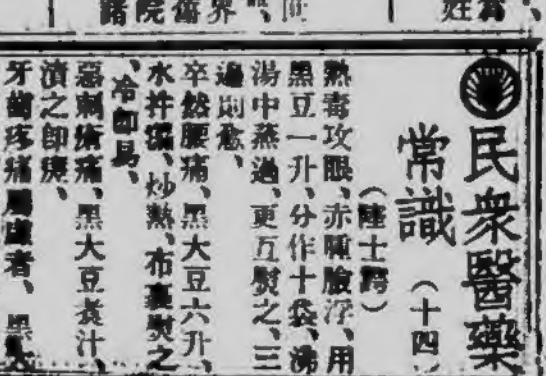 諸院舊界
姓爲
民衆醫藥
常識
（十四）
（陸士諤）
熱毒攻眼、赤腫瞼浮、用
黑豆一升、分作十袋、沸
湯中蒸過、更互熨之、三
遍則愈、
卒然腰痛、黑大豆六升、
水拌濕、炒熱、布裹熨之
、冷卽易、
惡刺瘡痛、黑大豆煮汁、
漬之卽痊、
牙齒疼痛屬虛者、黑大